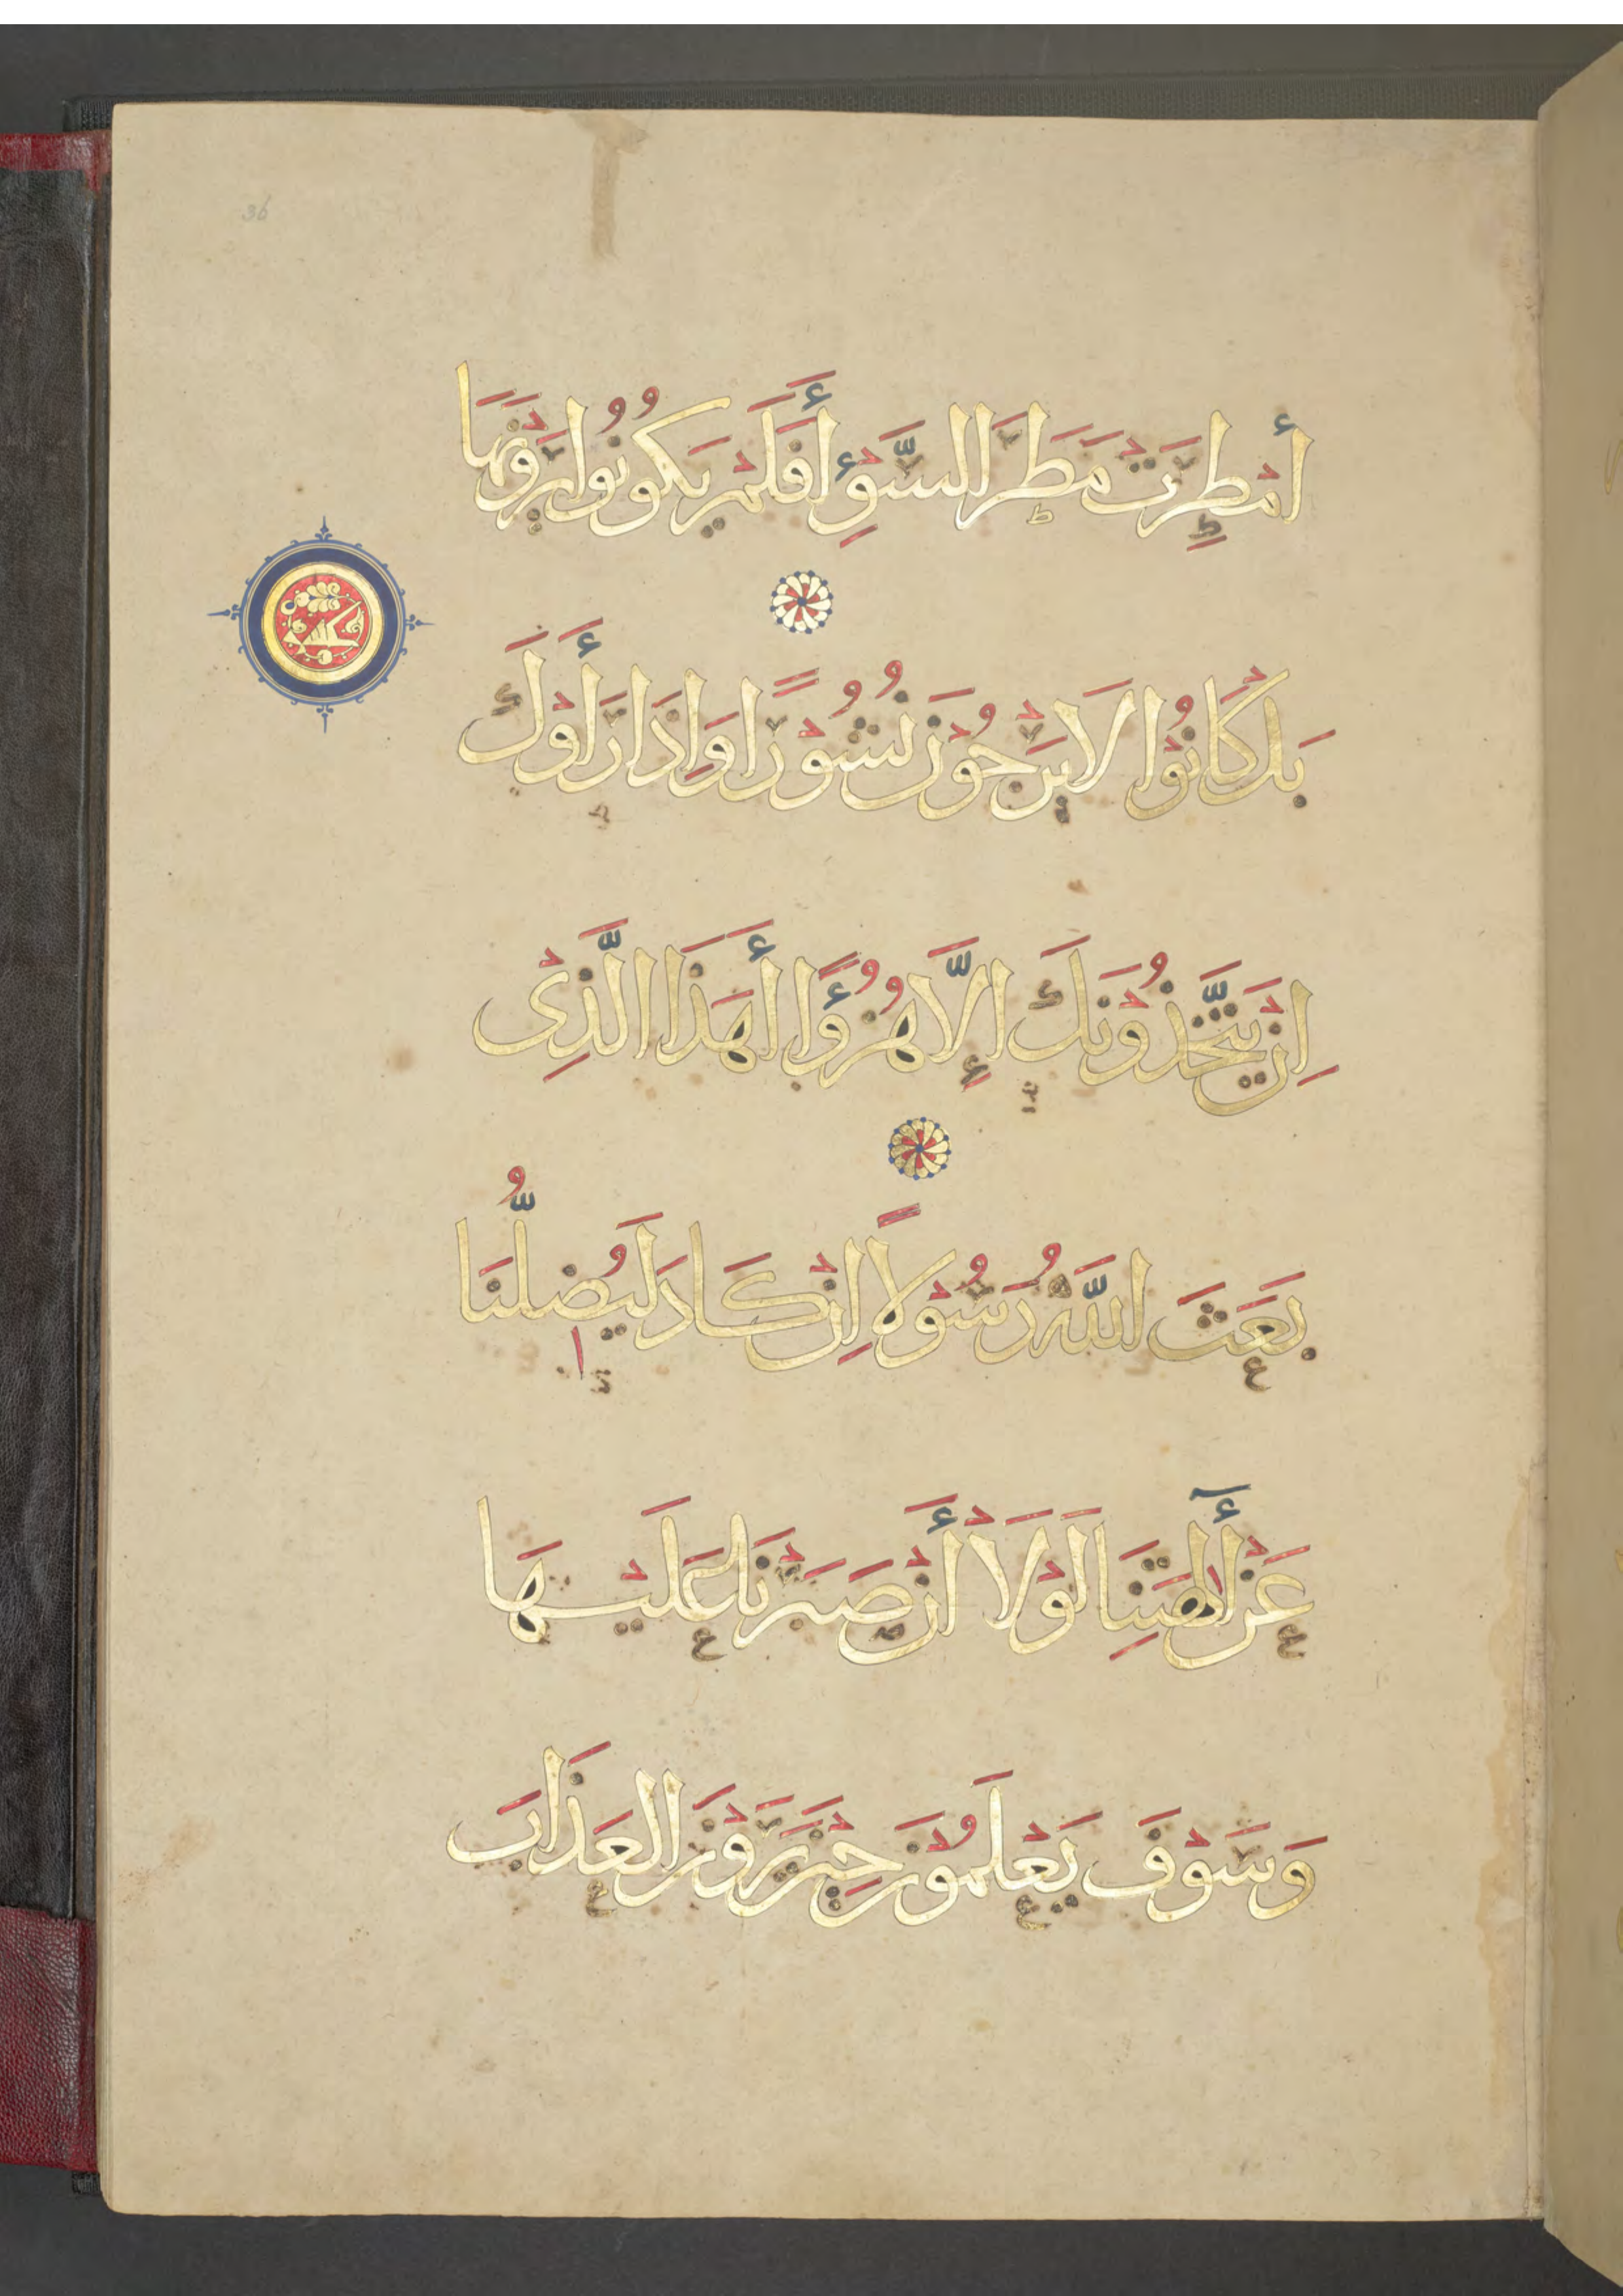 36
أُمْطِرَتْ مَطَرَ السَّوْءِ أَفَلَمْ يَكُونُوا يَرَوْنَهَا
بَلْ كَانُوْا لَا يَرْجُوْنَ نُشُوْرًا وَإِذَا رَأَوْكَ
إِنْ يَتَّخِذُوْنَكَ إِلَّا هُزُؤًا أَهَذَا الَّذِيْ
بَعَثَ اللَّهُ رَسُوْلًا إِنْ كَادَ لَيُضِلُّنَا
عَنْ أٰلِهَتِنَا لَوْلَا أَنْ صَبَرْنَا عَلَيْهَا
وَسَوْفَ يَعْلَمُوْنَ حِيْنَ يَرَوْنَ الْعَذَابَ